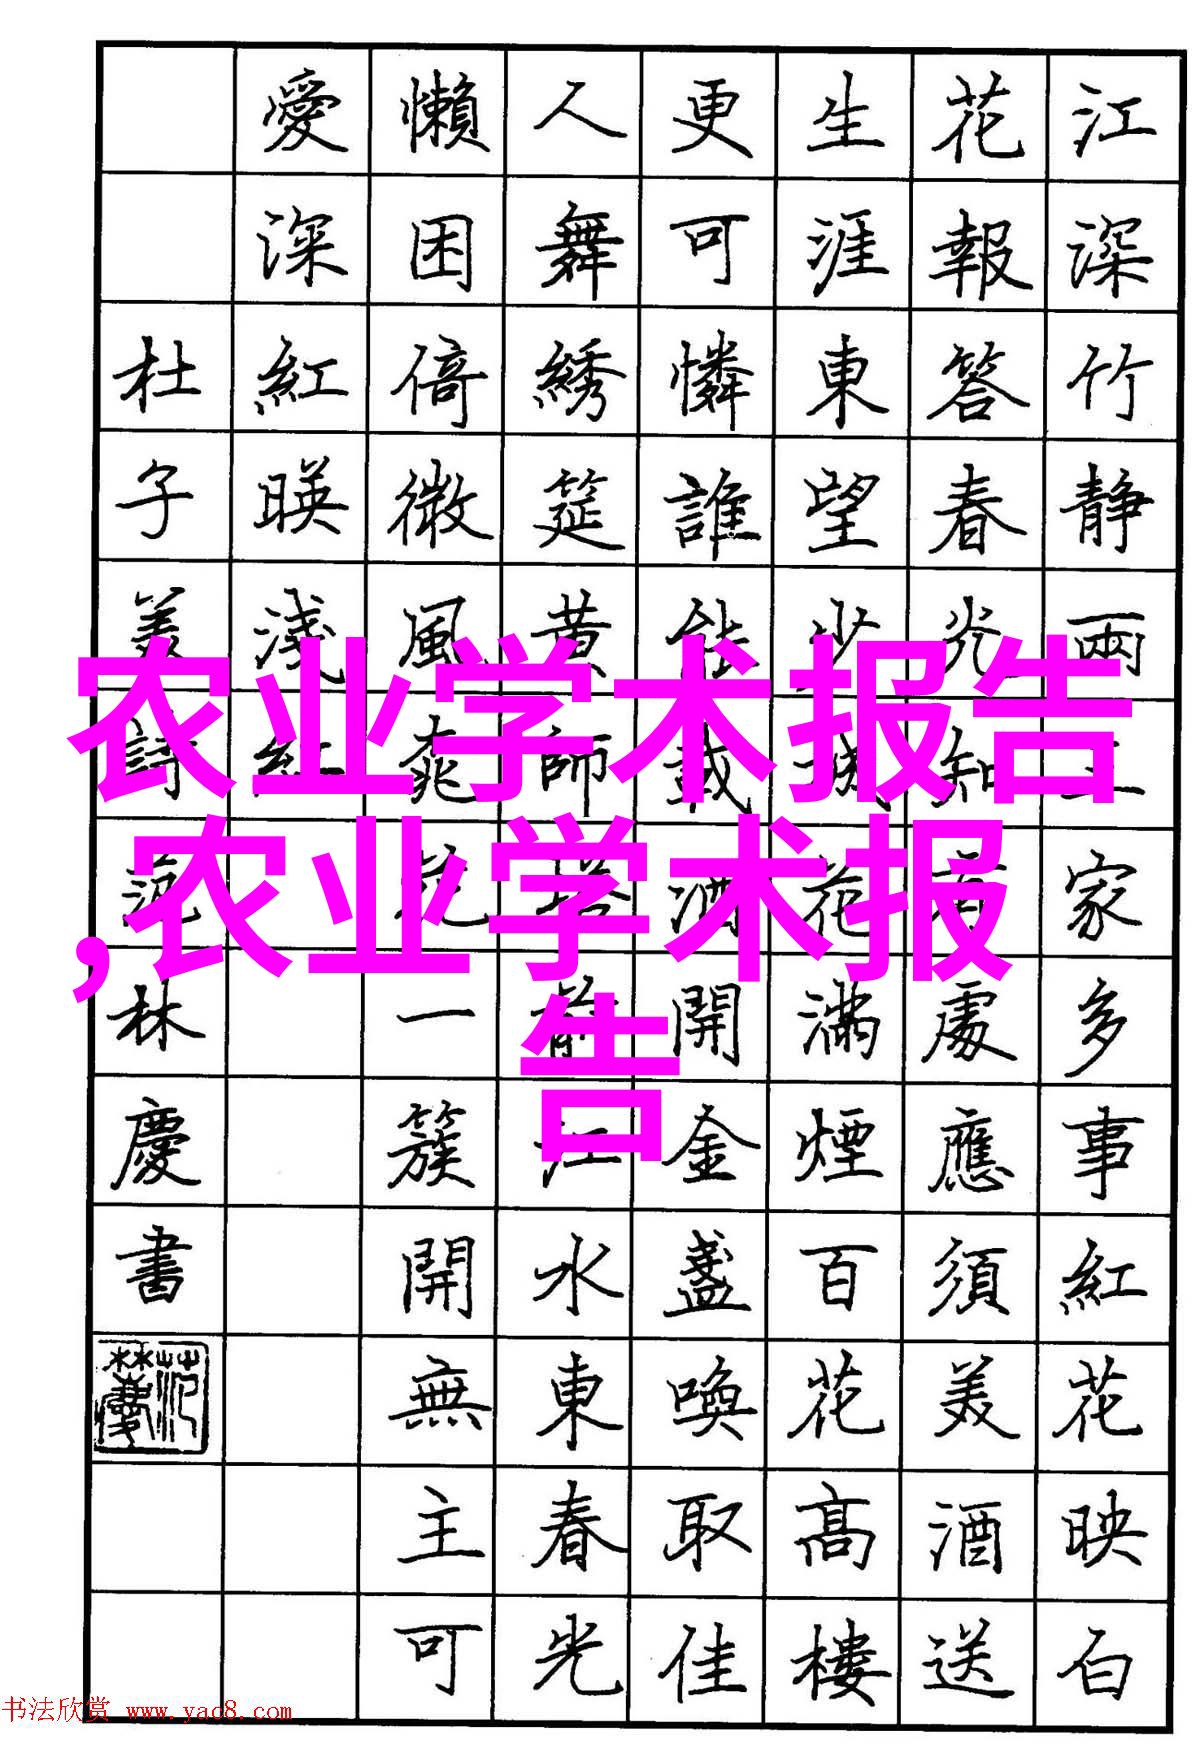 江深竹静兩三家多事紅花映白
花報答春光知有處應須美酒送
生涯東望少城花滿煙百花高樓
更可憐誰能載酒開金盞喚取佳
人舞綉筵黄師塔前江水東春光
懶困倚微風桃花一簇開無主可
愛深紅暎淺紅
杜子美詩范林慶書
农业学术报告
,农业学术报
告
书法欣赏 www.yac8.com